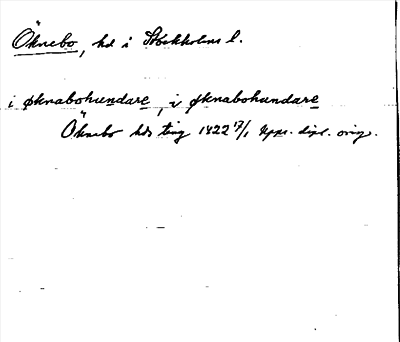 Öknebo, hd i Stockholms l.
i øknabohundare, i øknabohundare
Öknebo hds ting 1422 17/1 Upps. dipl. orig.